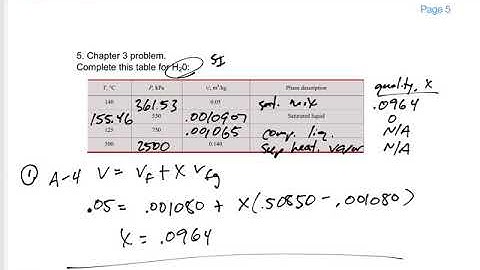 Page 5
5. Chapter 3 problem.
Complete this table for H₂0: SI
T, °C P, kPa v, m³/kg Phase description quality, X
140 361.53 0.05 sat. mix .0964
155.46 550 .0010907 Saturated liquid 0
125 750 .001065 comp. liq. N/A
500 2500 0.140 sup heat. vapor N/A
① A-4 V = Vf + X Vfg
.05 = .001080 + X(.50850 - .001080)
X = .0964